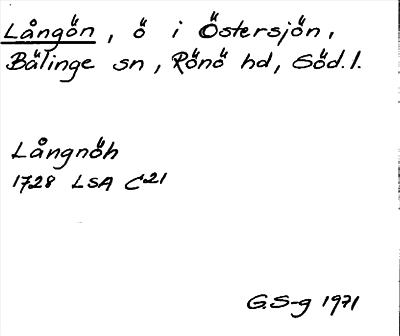 Långön, ö i Östersjön,
Bälinge sn, Rönö hd, Söd.l.
Långnöh
1728 LSA C21
G.S-g 1971